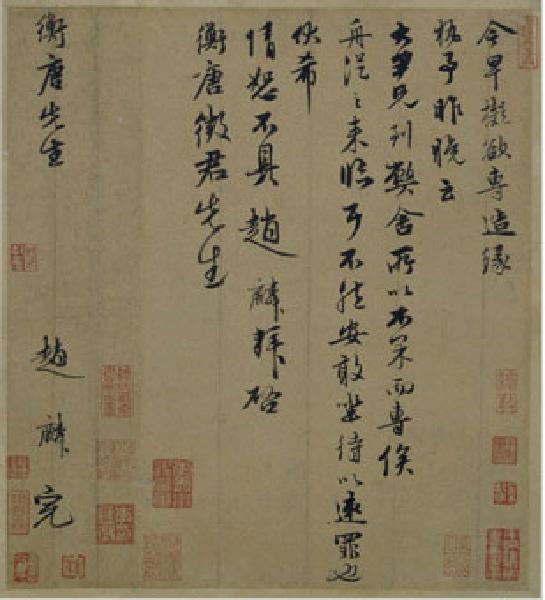 今早擬欲專造緣
昨晚云
兄到弊舍所以不果而專俟
舟從之來臨耳不然安敢坐待以速罪也
伏希
情恕不具趙麟拜啓
衡唐徵君先生
衡唐先生 趙麟完